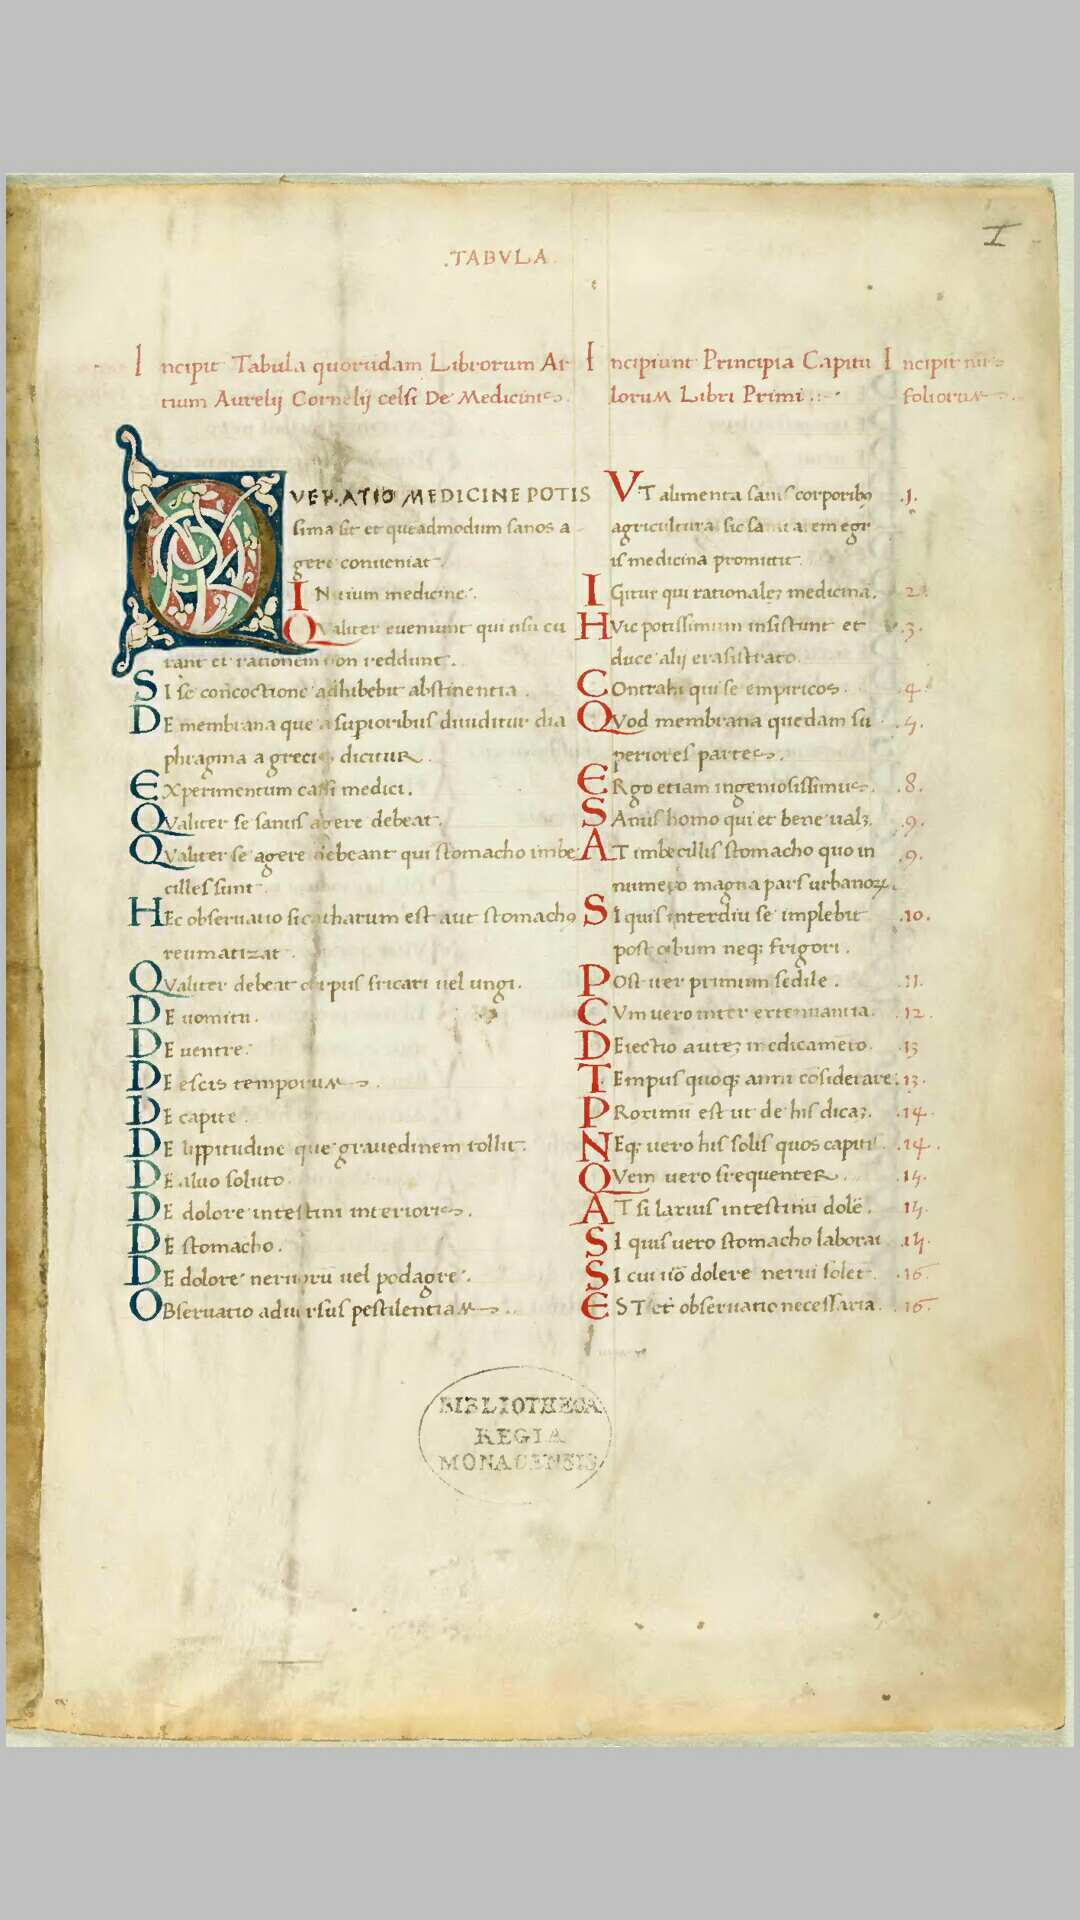 I
.TABVLA.
Incipit Tabula quorūdam Librorum Ar
tium Aurelij Cornelij celsi De Medicines.
QVE RATIO MEDICINE POTIS
sima sit et queadmodum sanos a
gere conueniat.
INitium medicine.
Qvaliter eueniunt qui usu cu
rant et rationem non reddunt.
SI se concoctione adhibebit abstinentia.
DE membrana que a supioribus diuiditur dia
phragma a grecis dicitur.
EXperimentum cassi medici.
QValiter se sanus agere debeat.
QValiter se agere debeant qui stomacho imbe
cilles sunt.
HEc obseruatio si catharum est aut stomacho
reumatizat.
QValiter debeat corpus fricari uel ungi.
DE uomitu.
DE uentre.
DE escis temporum.
DE capite.
DE lippitudine que grauedinem tollit.
DE aluo soluto.
DE dolore intestini interioris.
DE stomacho.
DE dolore neruorū uel podagre.
OBseruatio aduersus pestilentiam.
Incipiunt Principia Capitu
lorum Libri Primi.
VT alimenta sanis corporibꝰ
agricultura sic sanitatem egr
is medicina promittit.
IGitur qui rationaleꝫ medicinā.
HVic potissimum insistunt et
duce alij erasistrato.
COntrahi qui se empiricos.
QVod membrana quedam su
periores partes.
ERgo etiam ingeniosissimus.
SAnus homo qui et bene ualꝫ.
AT imbecillis stomacho quo in
numero magna pars urbanoꝝ.
SI quis interdiu se implebit
post cibum neqꝫ frigori.
POst iter primum sedile.
CVm uero inter extenuantia.
DEiectio auteꝫ medicamēto.
TEmpus quoqꝫ anni cōsiderare.
PRoximū est ut de his dicaꝫ.
NEqꝫ uero his solis quos capitis
QVem uero frequenter.
AT si larius intestinū dolē.
SI quis uero stomacho laborat
SI cui uō dolere nerui solet
EST et obseruatio necessaria.
Incipit nu
foliorum
.1.
.2.
.3.
.4.
.5.
.8.
.9.
.9.
.10.
.11.
.12.
.13
.13.
.14.
.14.
.15.
.15.
.15.
.16.
.16.
BIBLIOTHECA
REGIA
MONACENSIS.